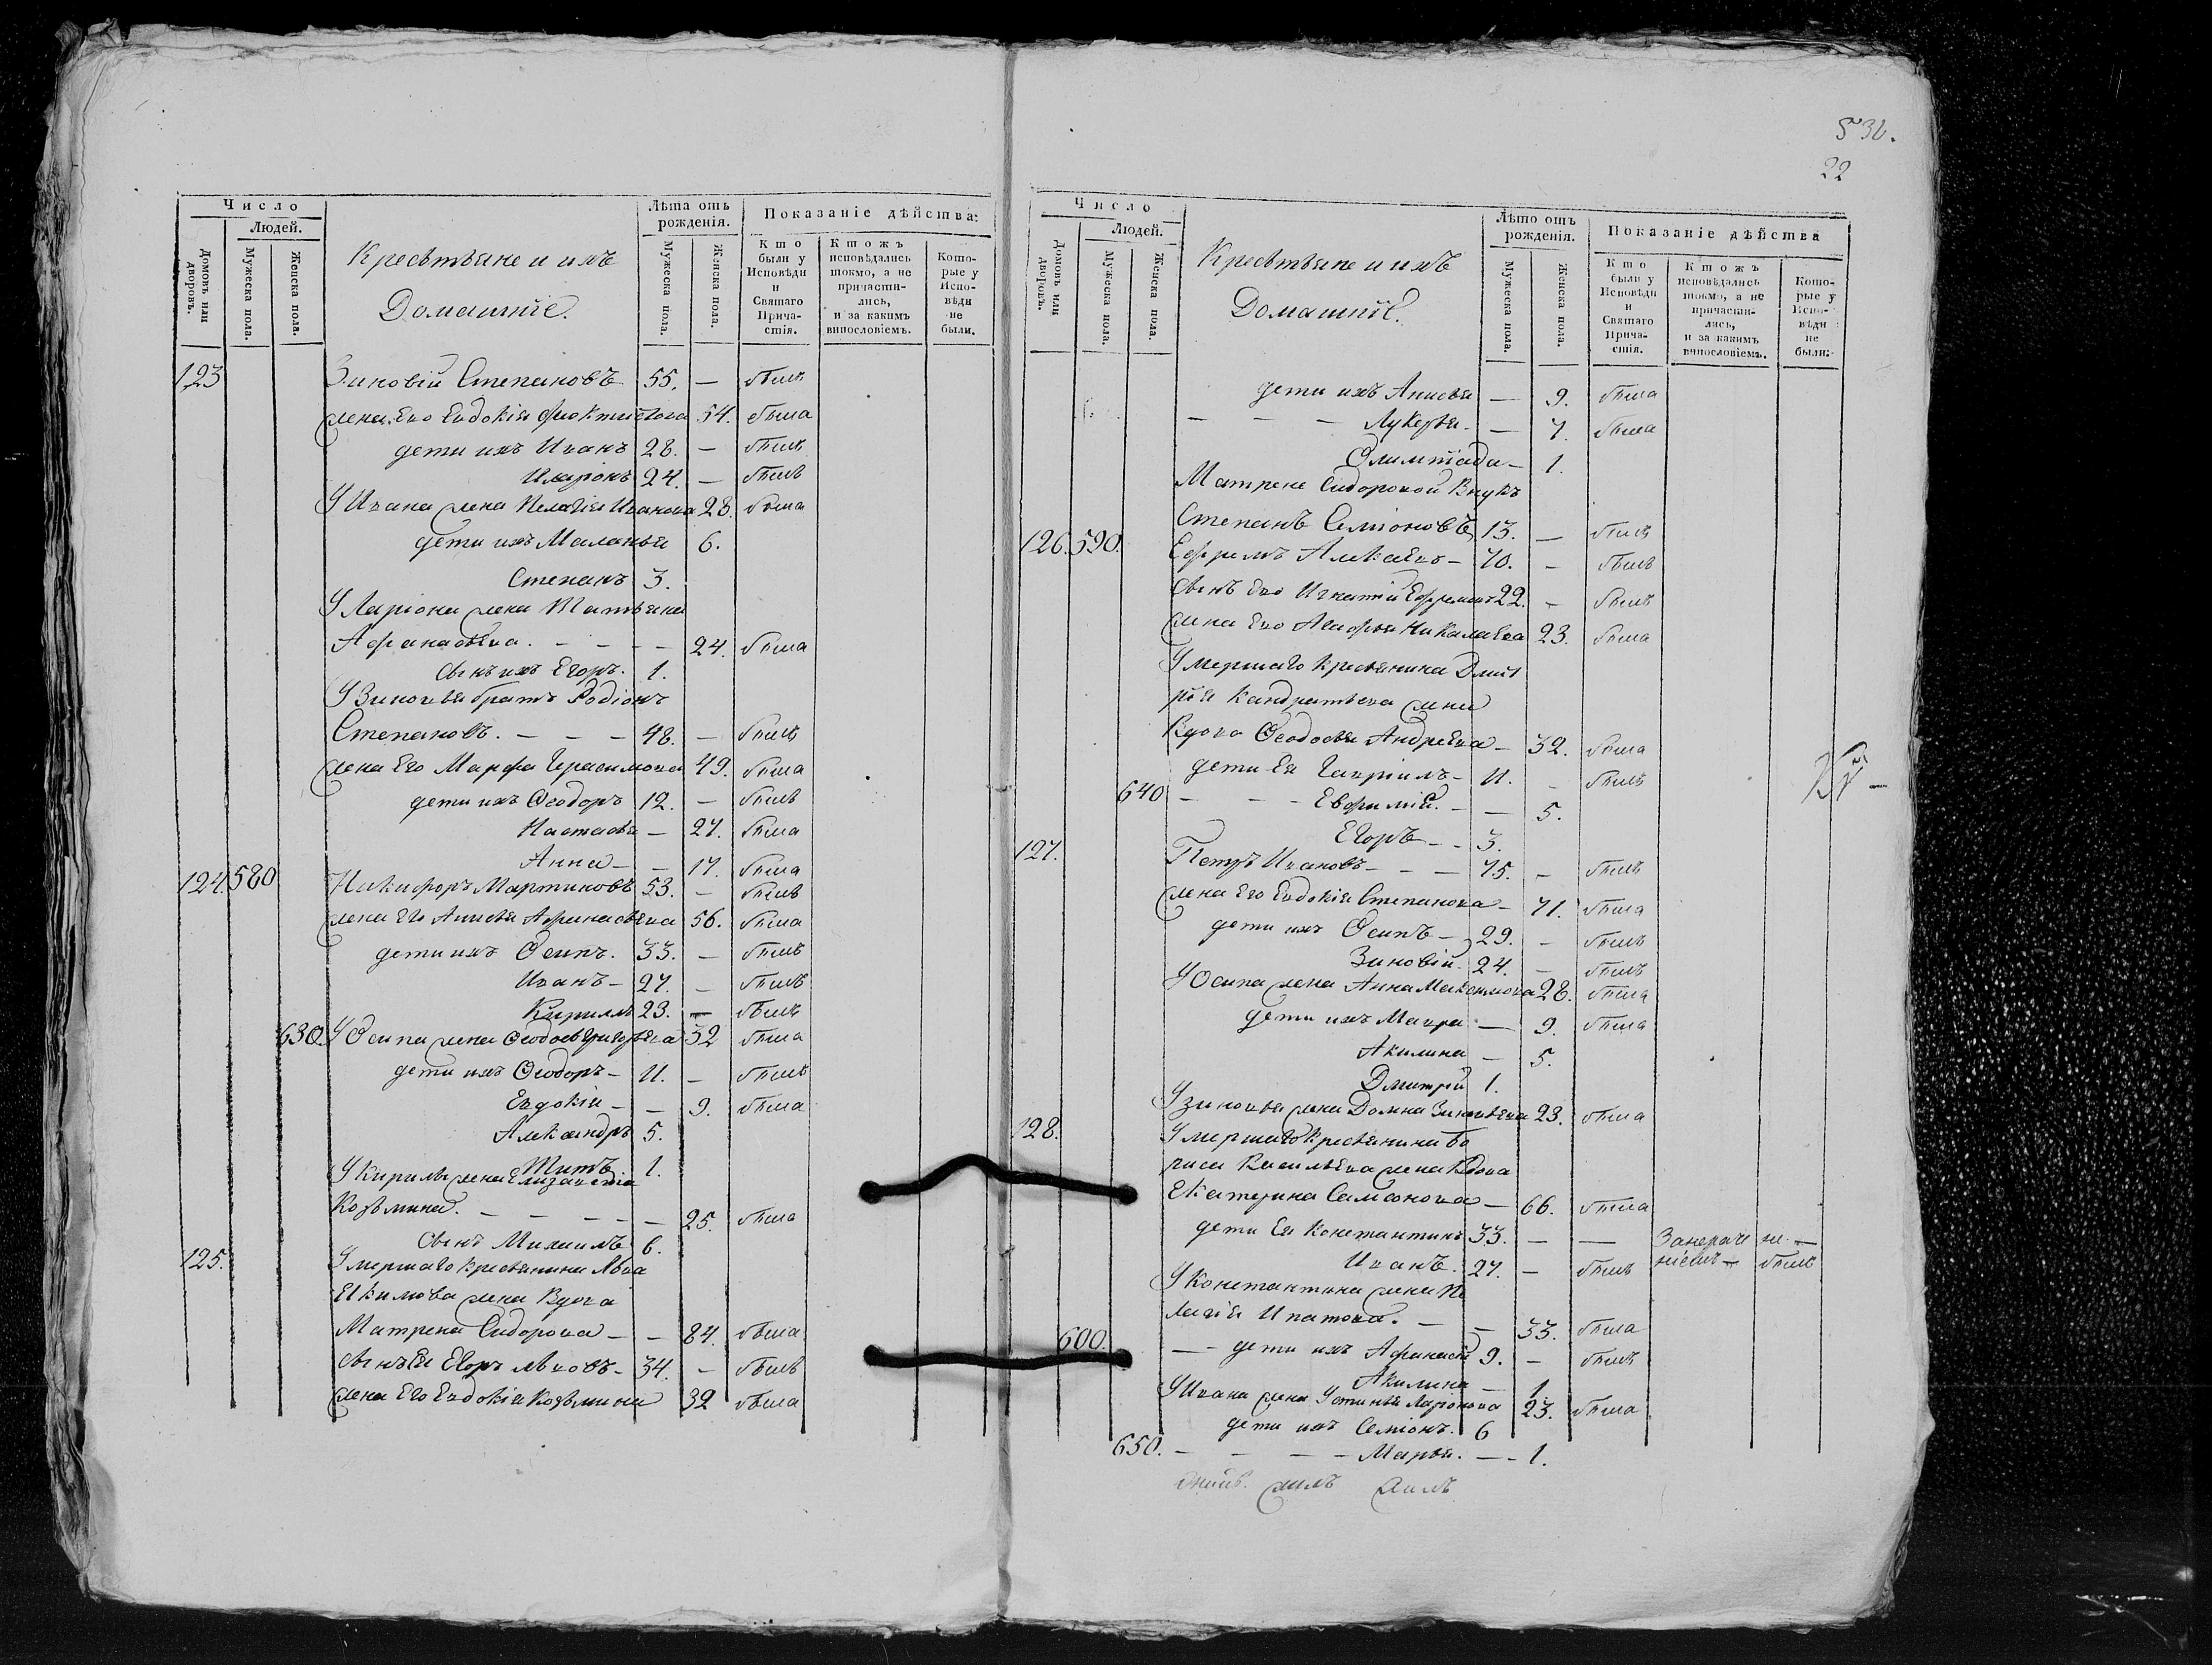 532.
22
Число
Людей.
Домовъ или дворовъ.
Мужеска пола.
Женска пола.
Крестьяне и ихъ
Домашніе.
Лѣта отъ рожденія.
Мужеска пола.
Женска пола.
Показаніе дѣйства:
Кто были у Исповѣди и Святаго Причастія.
Ктожъ исповѣдались токмо, а не причастились, и за какимъ винословіемъ.
Которые у Исповѣди не были.
123 Зиновій Степановъ 55. — былъ
жена Его Евдокія Феоктистова 54. была
дети ихъ Иванъ 28. — былъ
Иларіонъ 24. — былъ
У Ивана жена Пелагія Иванова 23. была
дети ихъ Маланья 6.
Степанъ 3.
У Ларіона жена Татьяна
Афанасьева. — — — 24. была
сынъ ихъ Егоръ. 1.
У Зиновья братъ Родіонъ
Степановъ. — — — 48. — былъ
жена Его Марфа Герасимова 49. была
дети ихъ Ѳеодоръ 12. — былъ
Настасья — 27. была
Анна — — 17. была
124. 580 Никифоръ Мартиновъ 53. — былъ
жена Его Анисья Афанасьева 56. была
дети ихъ Осипъ. 33. — былъ
Иванъ — 27. — былъ
Кирилъ 23. — былъ
630. У Осипа жена Ѳеодосья Григорьева 32 была
дети ихъ Ѳеодоръ — 11. — былъ
Евдокія — — 9. была
Александръ 5.
Титъ 1.
У Кирилы жена Елизавета
Козьмина. — — — — — 25. была
сынъ Михаилъ 6.
125. Умершаго крестьянина Льва
Екимова жена вдова
Матрена Сидорова — — 84. была
сынъ Ея Егоръ Львовъ — 34. — былъ
жена Его Евдокія Козьмина 32 была
Число
Людей.
Домовъ или дворовъ.
Мужеска пола.
Женска пола.
Крестьяне и ихъ
Домашніе.
Лѣто отъ рожденія.
Мужеска пола.
Женска пола.
Показаніе дѣйства
Кто были у Исповѣди и Святаго Причастія.
Ктожъ исповѣдались токмо, а не причастились, и за какимъ винословіемъ.
Которые у Исповѣди не были:
дети ихъ Анисья — 9. была
— — — Лукерья. — 7. была
Олимпіада — 1.
Матрене Сидоровой внукъ
Степанъ Семіоновъ 13. — былъ
126. 590. Ефремъ Алексѣевъ — 70. — былъ
сынъ Его Игнатій Ефремовъ 22. — былъ
жена Его Агафья Николаева 23. была
Умершаго крестьянина Дмит
рія Кандратьева жена
вдова Ѳеодосья Андреева — 32. была
дети Ея Гавріилъ — 11. — былъ
640 — — — Евфимія. — — 5.
Егоръ — — 3.
127. Петръ Ивановъ — — — 75. — былъ
жена Его Евдокія Степанова — 71. была
дети ихъ Осипъ — 29. — былъ
Зиновій. 24. — былъ
У Осипа жена Анна Максимова 28. была
дети ихъ Мавра — 9. была
Акилина — 5.
Дмитрій 1.
У Зиновья жена Домна Зиновьева 23. была
128. Умершаго крестьянина Бо
риса Васильева жена вдова
Екатерина Самсонова — 66. была
дети Ея Константинъ 33. — — Занераче не —
Иванъ. 27. — былъ ніемъ — былъ
У Константина жена Пе
лагія Ипатова. — — 33. была
600. — — дети ихъ Афанасій 9. — былъ
Акилина — 1
У Ивана жена Устинья Ларіонова 23. была
дети ихъ Семіонъ. 6
650. — — — — Марья. — — 1.